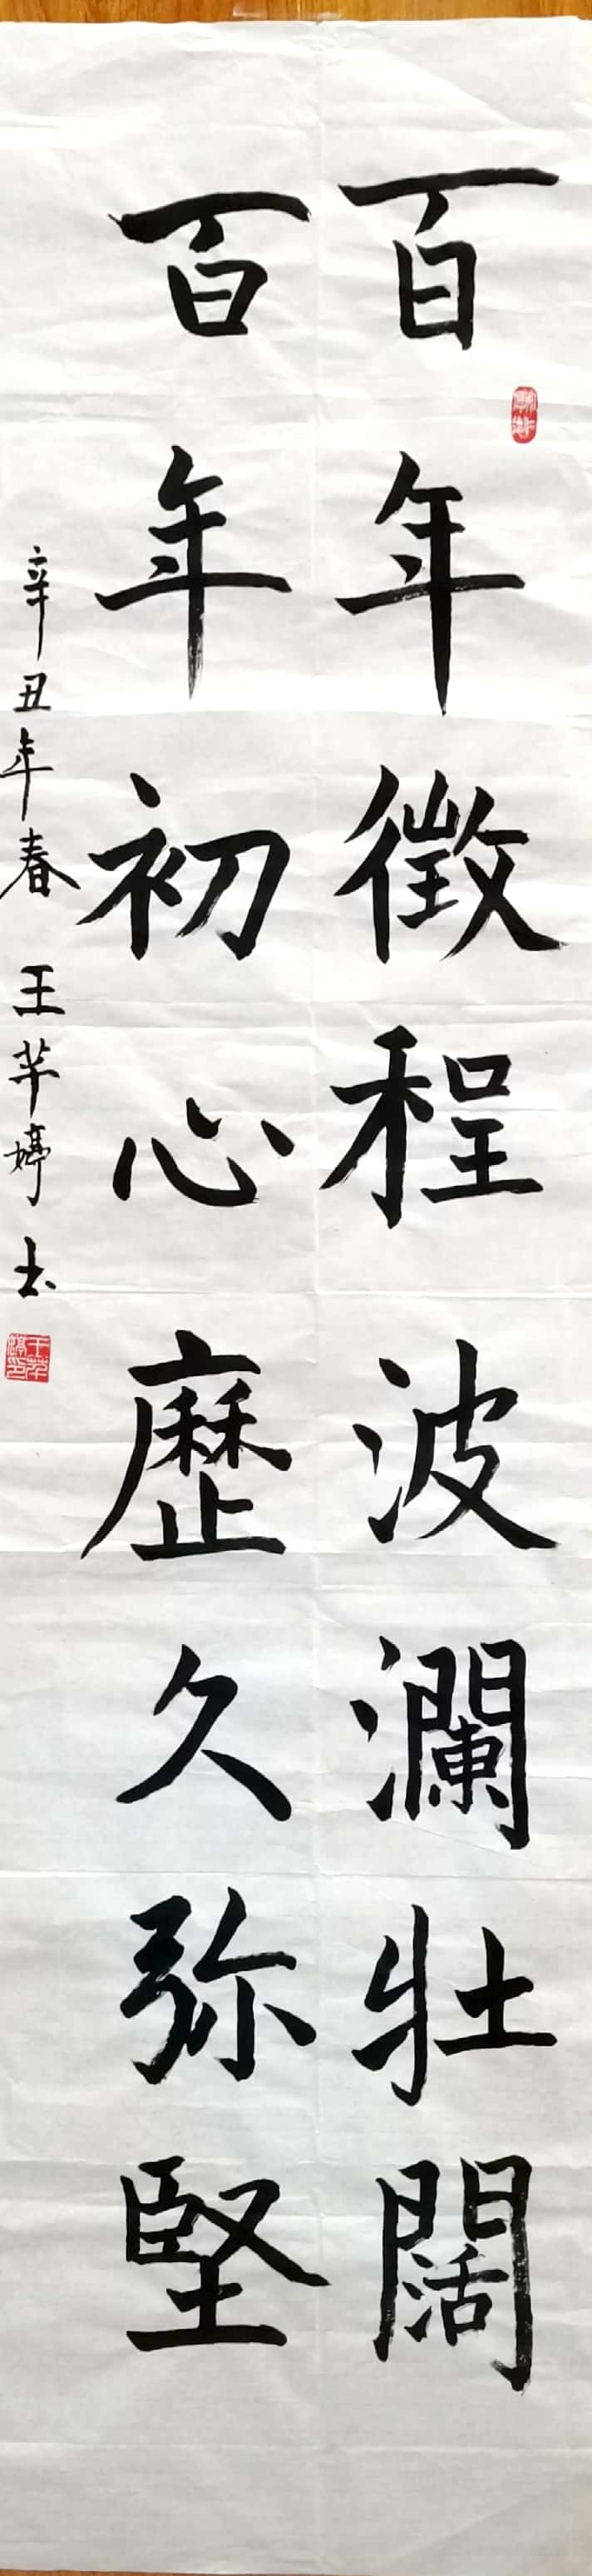 百年徵程波瀾壯闊
百年初心歷久弥堅
辛丑年春 王芊婷书
王芊婷印